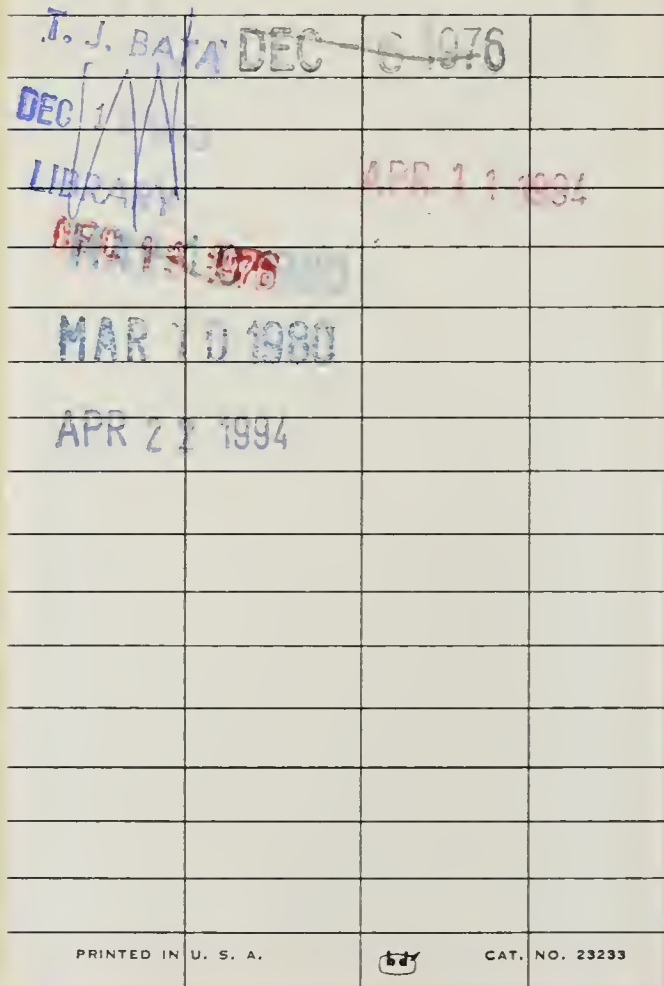 T. J. BATA DEC 6 1976
DEC 1
LIBRARY APR 11 1994
DEC 1 1976
MAR 10 1980
APR 22 1994
PRINTED IN U. S. A. bd CAT. NO. 23233